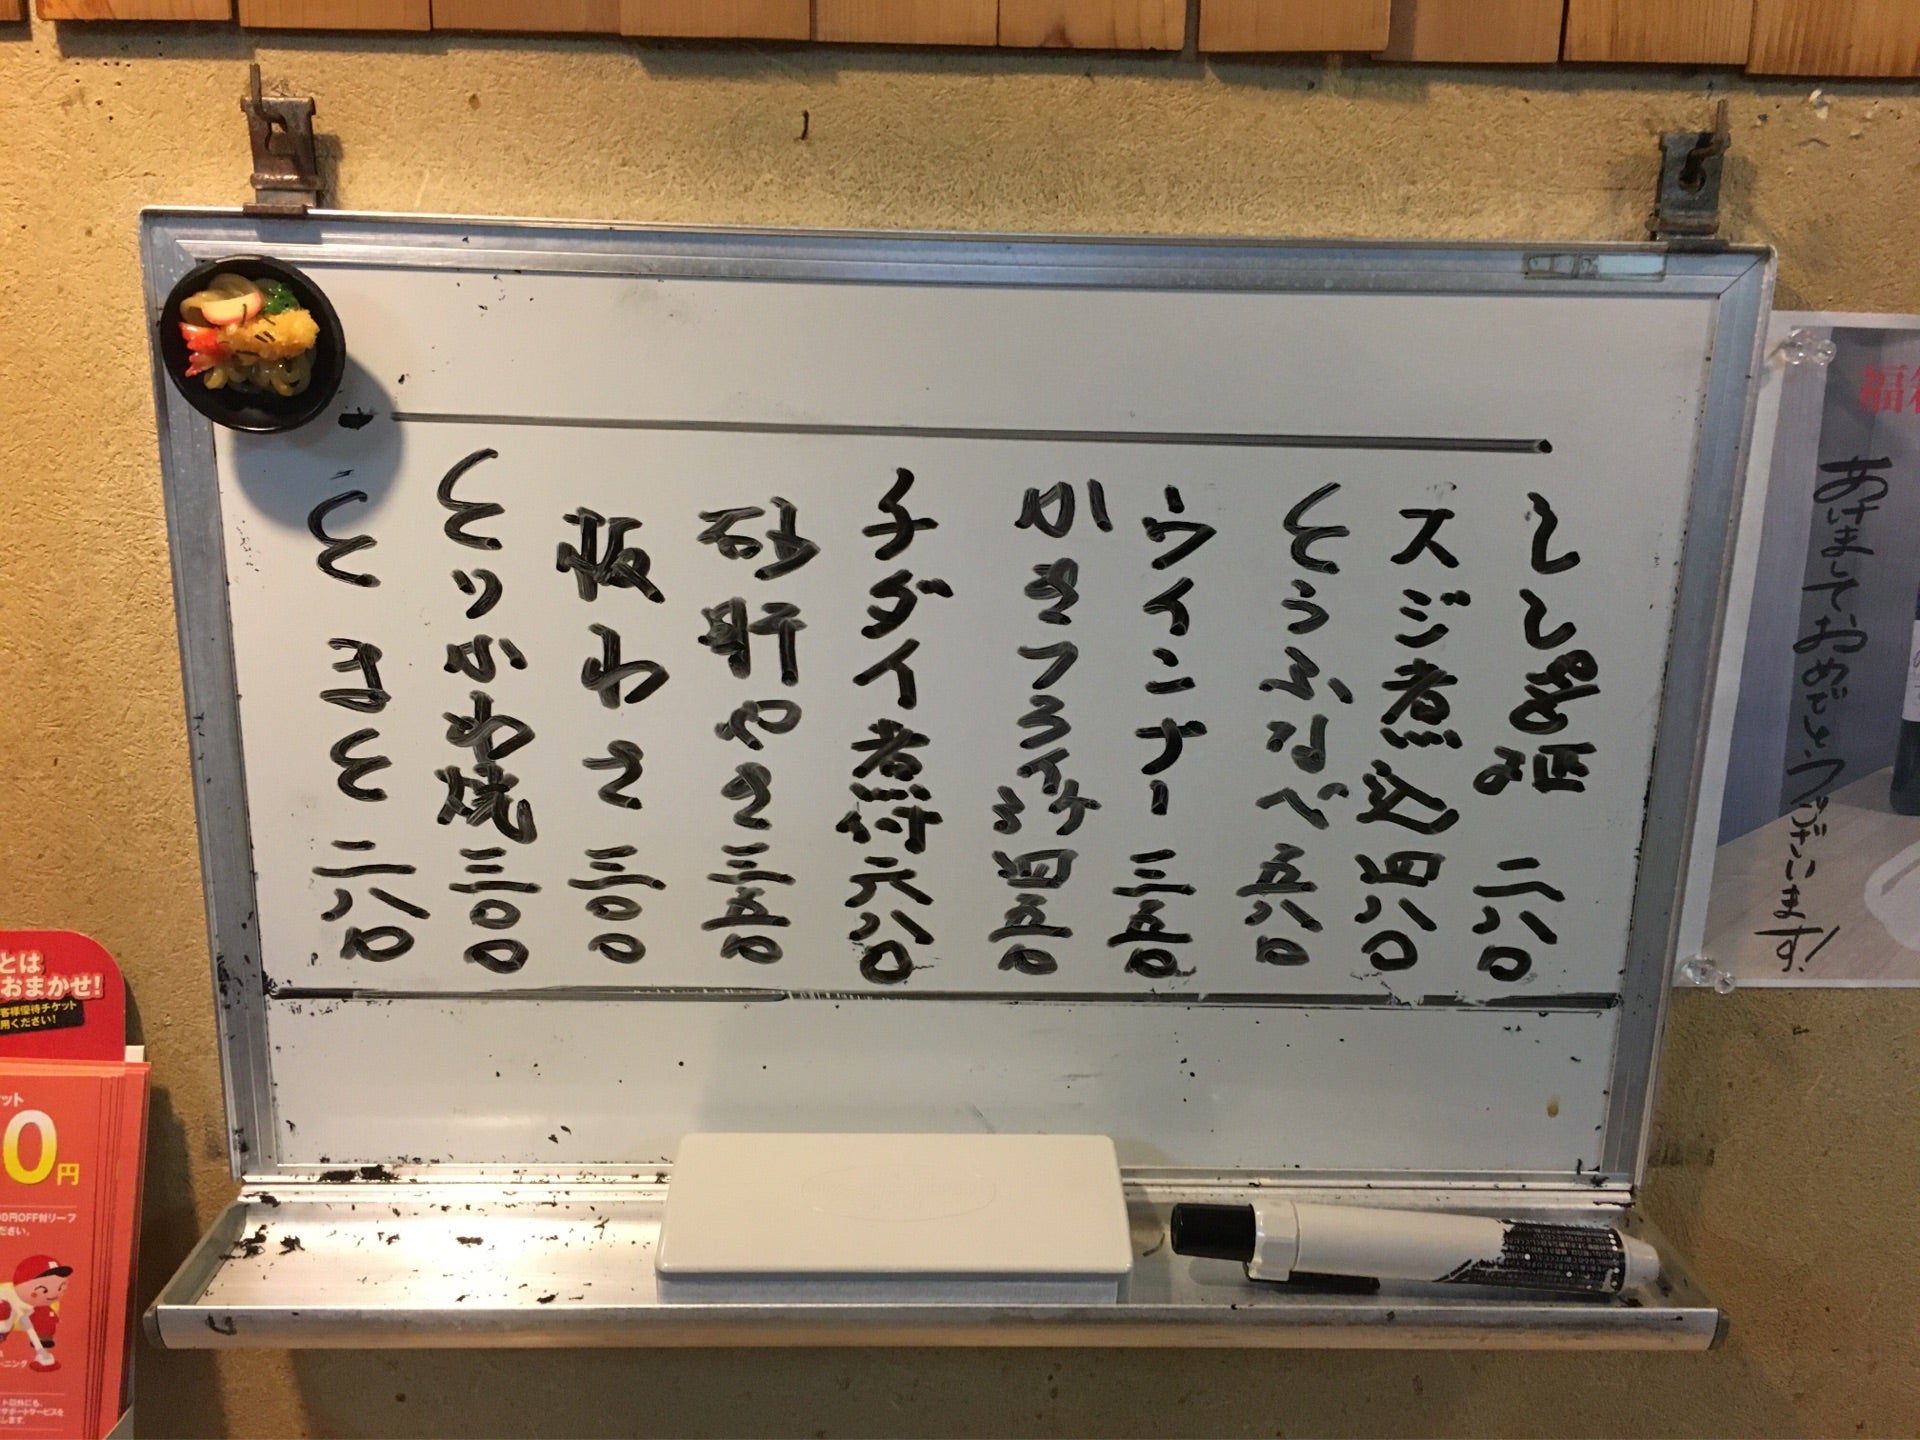 福
あけましておめでとうございます!
しし 二八〇
スジ煮込 四八〇
とうふなべ 五八〇
ウインナー 三五〇
四五〇
チダイ煮付 六八〇
砂肝やき 三五〇
板わさ 三〇〇
とりかわ焼 三〇〇
とまと 二八〇
とは
おまかせ!
客様優待チケット
用ください!
ット
0円
0円OFF付リーフ
ださい。
ーニング
ト以外にも、
サポートサービスを
します。